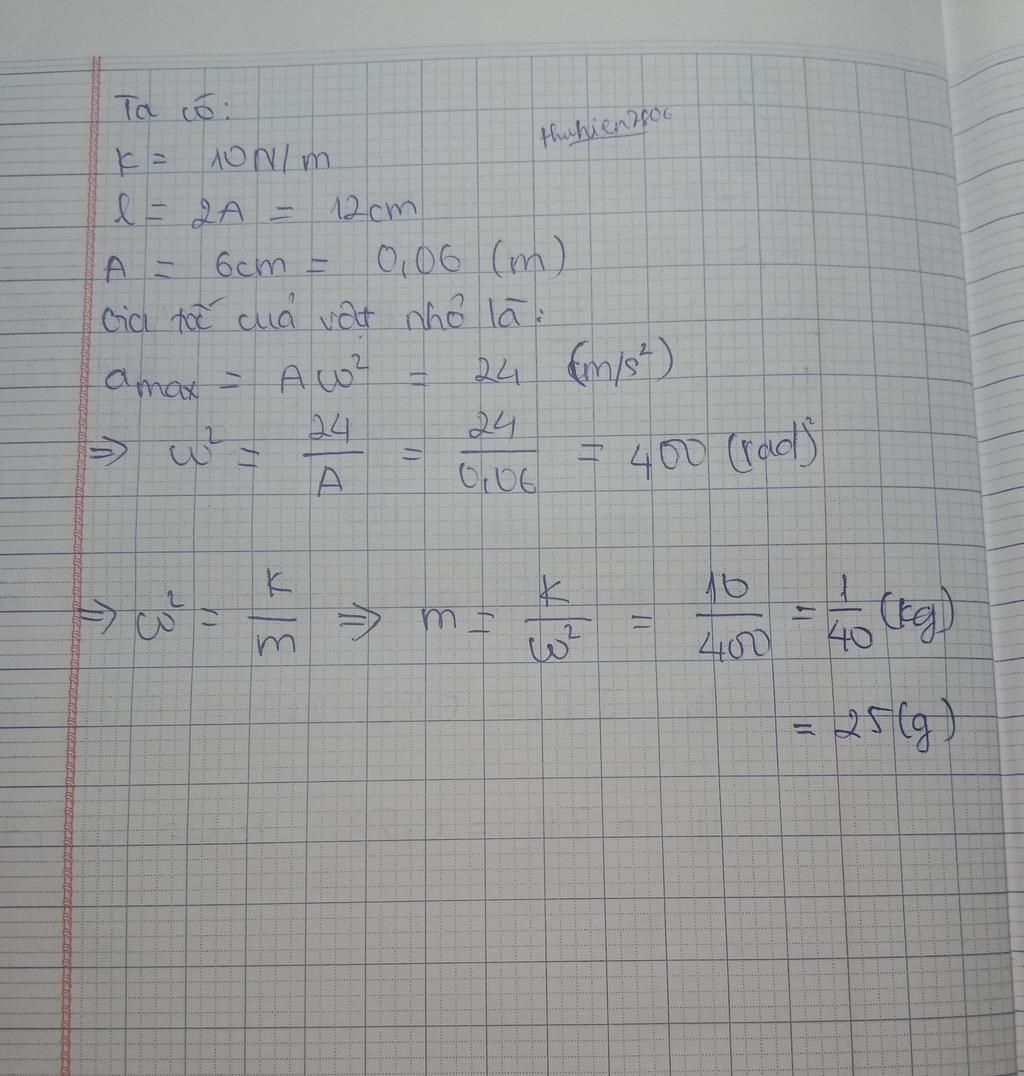 Ta có:
thuhien7806
K = 10N/m
l = 2A = 12cm
A = 6cm = 0,06 (m)
Gia tốc của vật nhỏ là:
amax = Aω² = 24 (m/s²)
⇒ ω² = 24/A = 24/0,06 = 400 (rad)²
⇒ ω² = K/m ⇒ m = K/ω² = 10/400 = 1/40 (kg)
= 25(g)